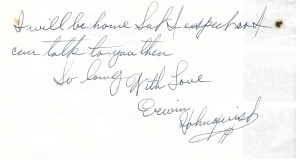 I will be home Sat I expect so I
can talk to you then
So long With Love
Erwin
Holmquist